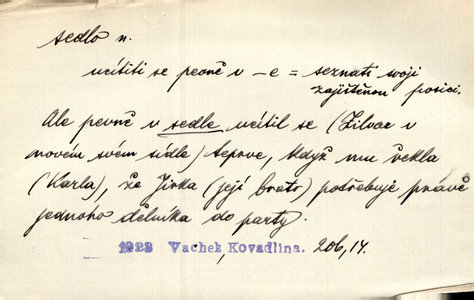 sedlo n.
ucítiti se pevně v -e = seznati svoji
zajištěnou posici.
Ale pevně v sedle ucítil se (Zilvar v
novém svém sídle) teprve, když mu řekla
(Karla), že Jirka (její bratr) potřebuje právě
jednoho dělníka do party.
1923 Vachek Kovadlina. 206,14.